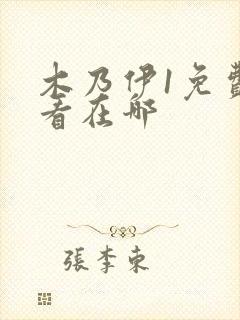 木乃伊1免費
看在哪
張李東